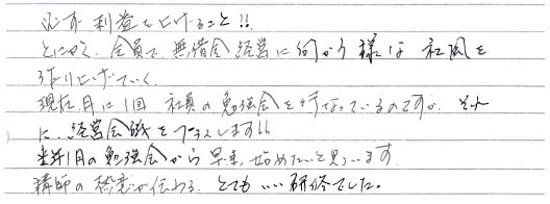 必ず利益を上げること!!
とにかく、全員で無借金経営に向かう様な社風を
作り上げていく。
現在月に1回 社員の勉強会を行なっているのですが、それ
に、経営会議をプラスします!!
来年1月の勉強会から早速、始めたいと思います。
講師の熱意が伝わる、とてもいい研修でした。